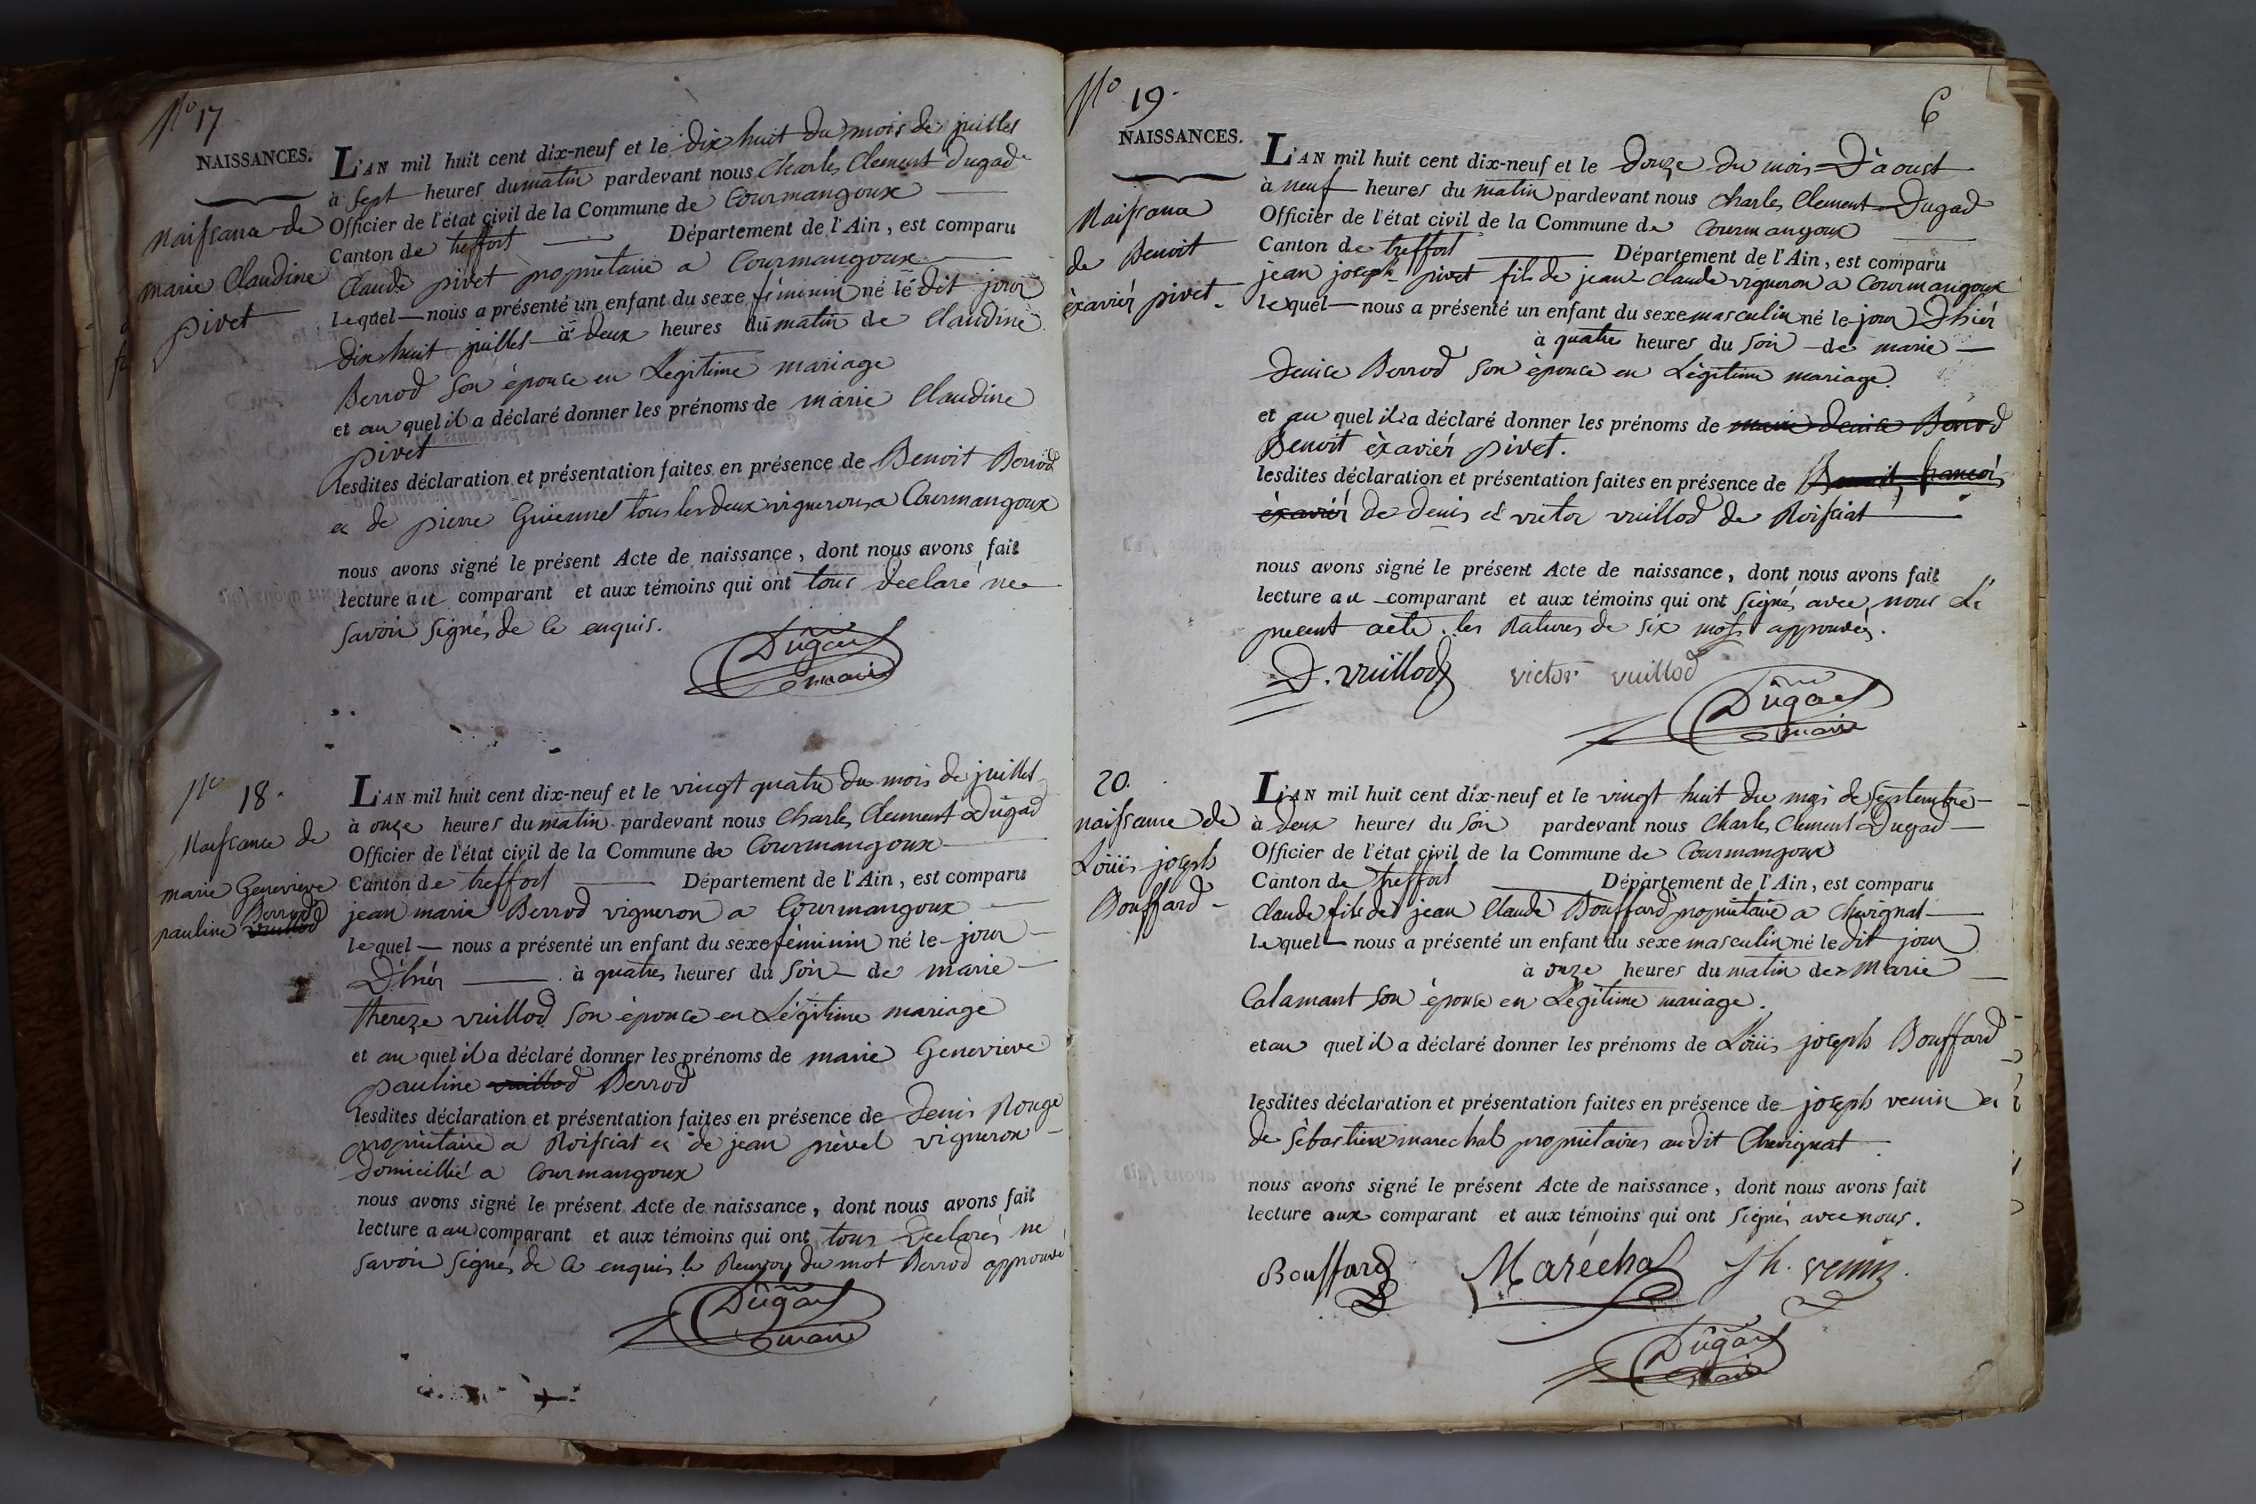 No 17
NAISSANCES.
Naissance de
marie Claudine
pivet
L'AN mil huit cent dix-neuf et le dix huit du mois de juillet
à sept heures du matin pardevant nous Charles Clement Dugad
Officier de l'état civil de la Commune de Courmangoux
Canton de treffort Département de l'Ain, est comparu
Claude pivet propriétaire a Courmangoux
lequel nous a présenté un enfant du sexe féminin né le dit jour
dix huit juillet à deux heures du matin de Claudine
Berrod son épouse en Légitime mariage
et au quel il a déclaré donner les prénoms de marie Claudine
pivet
lesdites déclaration et présentation faites en présence de Benoit Berrod
et de pierre Guiennet tous les deux vignerons a Courmangoux
nous avons signé le présent Acte de naissance, dont nous avons fait
lecture au comparant et aux témoins qui ont tous declaré ne
savoir signés de ce enquis.
Dugad
maire
No 18.
Naissance de
marie Genevieve
Berrod
pauline vuillod
L'AN mil huit cent dix-neuf et le vingt quatre du mois de juillet
à onze heures du matin pardevant nous Charles Clement Dugad
Officier de l'état civil de la Commune de Courmangoux
Canton de treffort Département de l'Ain, est comparu
jean marie Berrod vigneron a Courmangoux
lequel nous a présenté un enfant du sexe féminin né le jour
D'hiér à quatre heures du soir de marie
thereze vuillod son épouse en Légitime mariage
et au quel il a déclaré donner les prénoms de marie Genevieve
pauline vuillod Berrod
lesdites déclaration et présentation faites en présence de Denis Rouge
propriétaire a Roissiat et de jean pievel vigneron
domicillié a Courmangoux
nous avons signé le présent Acte de naissance, dont nous avons fait
lecture a au comparant et aux témoins qui ont tous declarés ne
savoir signés de ce enquis le Renvoy du mot Berrod approuvé
Dugad
maire
6
No 19.
NAISSANCES.
Naissance
de Benoit
èxaviér pivet.
L'AN mil huit cent dix-neuf et le douze du mois D'aoust
à neuf heures du matin pardevant nous Charles Clement Dugad
Officier de l'état civil de la Commune de Courmangoux
Canton de treffort Département de l'Ain, est comparu
jean joseph pivet fils de jean claude vigneron a Courmangoux
lequel nous a présenté un enfant du sexe masculin né le jour D'hiér
à quatre heures du soir de marie
denise Berrod son épouse en Légitime mariage.
et au quel il a déclaré donner les prénoms de marie denise Berrod
Benoit èxaviér pivet.
lesdites déclaration et présentation faites en présence de Benoit francois
èxaviér de denis et victor vuillod de Roissiat
nous avons signé le présent Acte de naissance, dont nous avons fait
lecture au comparant et aux témoins qui ont signés avec nous Le
present acte. les Ratures de six mots approuvés.
D. vuillod victor vuillod
Dugad
maire
20.
naissance de
Loüis joseph
Bouffard
L'AN mil huit cent dix-neuf et le vingt huit du mois de septembre
à deux heures du soir pardevant nous Charles Clement Dugad
Officier de l'état civil de la Commune de Courmangoux
Canton de treffort Département de l'Ain, est comparu
Claude fils de jean Claude Bouffard propriétaire a Chevignat
lequel nous a présenté un enfant du sexe masculin né le dit jour
à onze heures du matin de Marie
Calamant son épouse en Légitime mariage.
et au quel il a déclaré donner les prénoms de Loüis joseph Bouffard
lesdites déclaration et présentation faites en présence de joseph venin et
de sébastien marechal propriétaires au dit Chevignat.
nous avons signé le présent Acte de naissance, dont nous avons fait
lecture aux comparant et aux témoins qui ont signés avec nous.
Bouffard Maréchal Jh. venin.
Dugad
maire